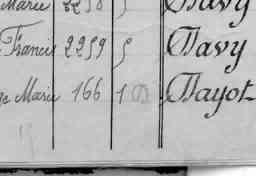 Marie 2258 5 Davy
Francis 2259 5 Davy
Marie 166 1 Dayot